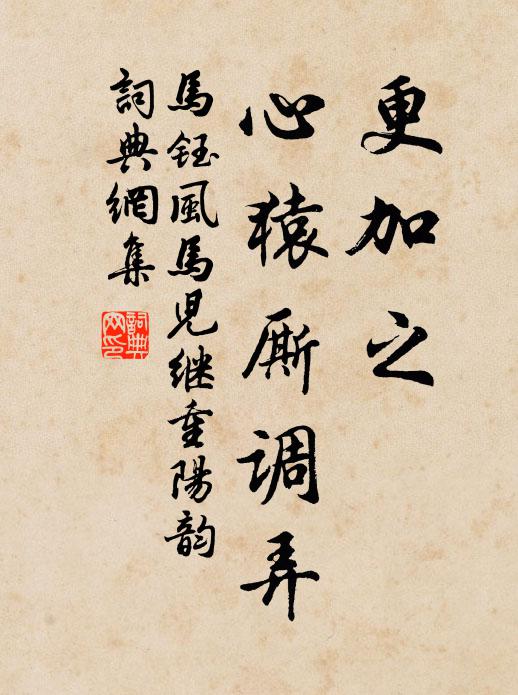 更加之
心猿厮调弄
馬鈺風馬児继重陽韵
詞典網集
詞典
网印